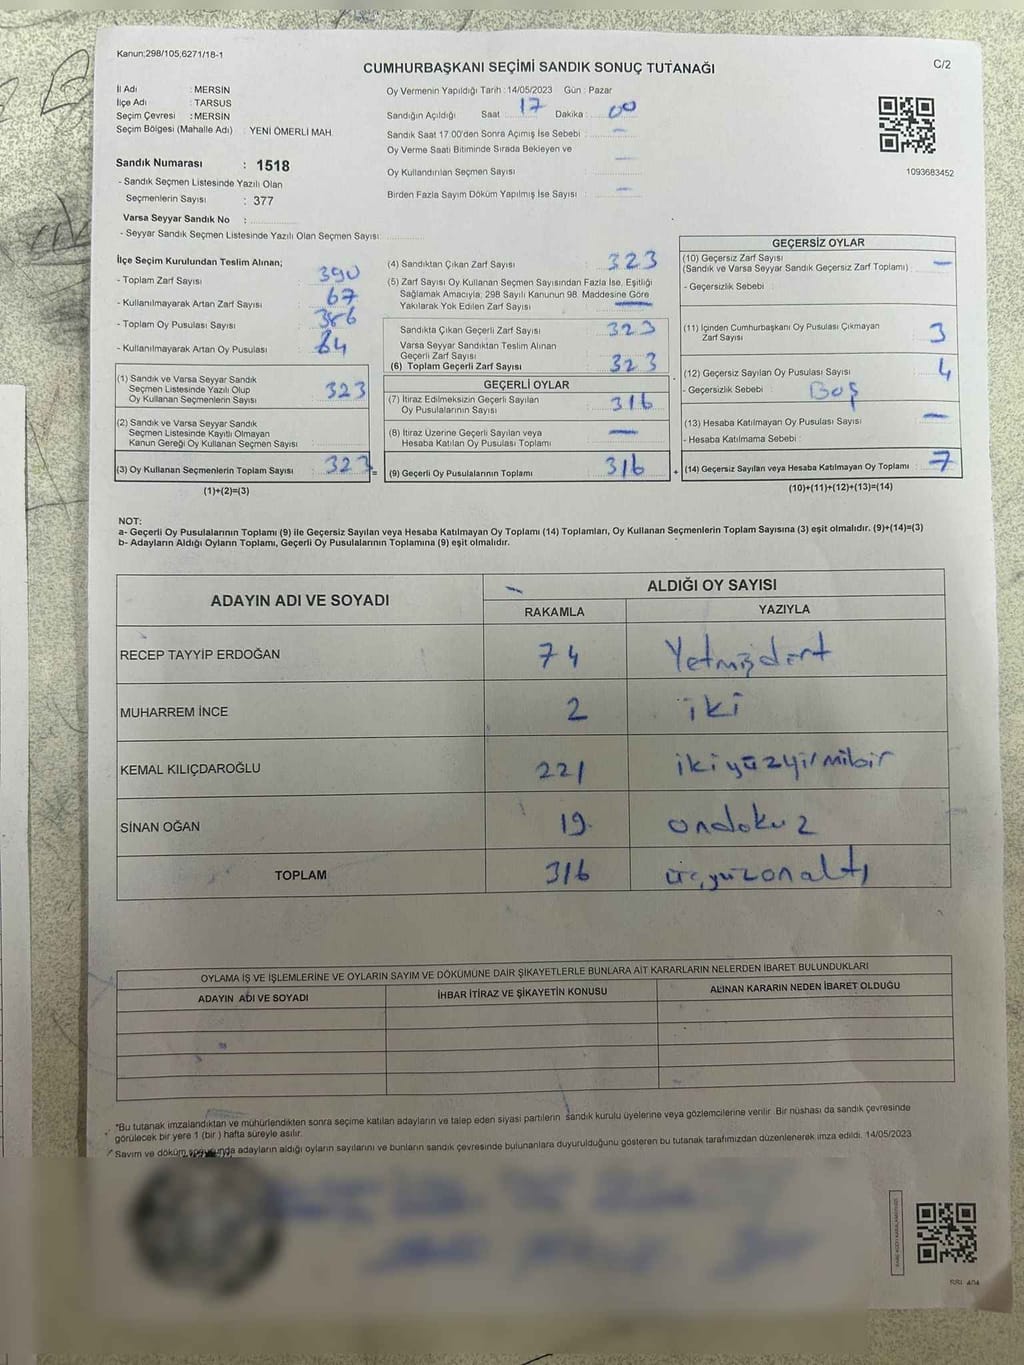 Kanun:298/105,6271/18-1
C/2
CUMHURBAŞKANI SEÇİMİ SANDIK SONUÇ TUTANAĞI
İl Adı : MERSİN
İlçe Adı : TARSUS
Seçim Çevresi : MERSİN
Seçim Bölgesi (Mahalle Adı) : YENİ ÖMERLİ MAH.
Sandık Numarası : 1518
- Sandık Seçmen Listesinde Yazılı Olan
Seçmenlerin Sayısı : 377
Varsa Seyyar Sandık No :
- Seyyar Sandık Seçmen Listesinde Yazılı Olan Seçmen Sayısı:
Oy Vermenin Yapıldığı Tarih : 14/05/2023 Gün : Pazar
Sandığın Açıldığı Saat 17 Dakika : 00
Sandık Saat 17.00'den Sonra Açımış İse Sebebi : -
Oy Verme Saati Bitiminde Sırada Bekleyen ve
Oy Kullandırılan Seçmen Sayısı : -
Birden Fazla Sayım Döküm Yapılmış İse Sayısı : -
1093683452
İlçe Seçim Kurulundan Teslim Alınan;
- Toplam Zarf Sayısı : 390
- Kullanılmayarak Artan Zarf Sayısı : 67
- Toplam Oy Pusulası Sayısı : 386
- Kullanılmayarak Artan Oy Pusulası : 64
(1) Sandık ve Varsa Seyyar Sandık
Seçmen Listesinde Yazılı Olup
Oy Kullanan Seçmenlerin Sayısı : 323
(2) Sandık ve Varsa Seyyar Sandık
Seçmen Listesinde Kayıtlı Olmayan
Kanun Gereği Oy Kullanan Seçmen Sayısı :
(3) Oy Kullanan Seçmenlerin Toplam Sayısı : 323 =
(1)+(2)=(3)
(4) Sandıktan Çıkan Zarf Sayısı : 323
(5) Zarf Sayısı Oy Kullanan Seçmen Sayısından Fazla İse, Eşitliği
Sağlamak Amacıyla; 298 Sayılı Kanunun 98. Maddesine Göre
Yakılarak Yok Edilen Zarf Sayısı : -
Sandıkta Çıkan Geçerli Zarf Sayısı : 323
Varsa Seyyar Sandıktan Teslim Alınan
Geçerli Zarf Sayısı :
(6) Toplam Geçerli Zarf Sayısı : 323
GEÇERLİ OYLAR
(7) İtiraz Edilmeksizin Geçerli Sayılan
Oy Pusulalarının Sayısı : 316
(8) İtiraz Üzerine Geçerli Sayılan veya
Hesaba Katılan Oy Pusulası Toplamı : -
(9) Geçerli Oy Pusulalarının Toplamı : 316 +
GEÇERSİZ OYLAR
(10) Geçersiz Zarf Sayısı
(Sandık ve Varsa Seyyar Sandık Geçersiz Zarf Toplamı) : -
- Geçersizlik Sebebi :
(11) İçinden Cumhurbaşkanı Oy Pusulası Çıkmayan
Zarf Sayısı : 3
(12) Geçersiz Sayılan Oy Pusulası Sayısı : 4
- Geçersizlik Sebebi : Boş
(13) Hesaba Katılmayan Oy Pusulası Sayısı : -
- Hesaba Katılmama Sebebi :
(14) Geçersiz Sayılan veya Hesaba Katılmayan Oy Toplamı : 7
(10)+(11)+(12)+(13)=(14)
NOT:
a- Geçerli Oy Pusulalarının Toplamı (9) ile Geçersiz Sayılan veya Hesaba Katılmayan Oy Toplamı (14) Toplamları, Oy Kullanan Seçmenlerin Toplam Sayısına (3) eşit olmalıdır. (9)+(14)=(3)
b- Adayların Aldığı Oyların Toplamı, Geçerli Oy Pusulalarının Toplamına (9) eşit olmalıdır.
ADAYIN ADI VE SOYADI ALDIĞI OY SAYISI
RAKAMLA YAZIYLA
RECEP TAYYİP ERDOĞAN 74 Yetmişdört
MUHARREM İNCE 2 iki
KEMAL KILIÇDAROĞLU 221 ikiyüzyirmibir
SİNAN OĞAN 19 ondokuz
TOPLAM 316 üçyüzonaltı
OYLAMA İŞ VE İŞLEMLERİNE VE OYLARIN SAYIM VE DÖKÜMÜNE DAİR ŞİKAYETLERLE BUNLARA AİT KARARLARIN NELERDEN İBARET BULUNDUKLARI
ADAYIN ADI VE SOYADI İHBAR İTİRAZ VE ŞİKAYETİN KONUSU ALINAN KARARIN NEDEN İBARET OLDUĞU
*Bu tutanak imzalandıktan ve mühürlendikten sonra seçime katılan adayların ve talep eden siyasi partilerin sandık kurulu üyelerine veya gözlemcilerine verilir. Bir nüshası da sandık çevresinde
görülecek bir yere 1 (bir ) hafta süreyle asılır.
Sayım ve döküm sonucunda adayların aldığı oyların sayılarını ve bunların sandık çevresinde bulunanlara duyurulduğunu gösteren bu tutanak tarafımızdan düzenlenerek imza edildi. 14/05/2023